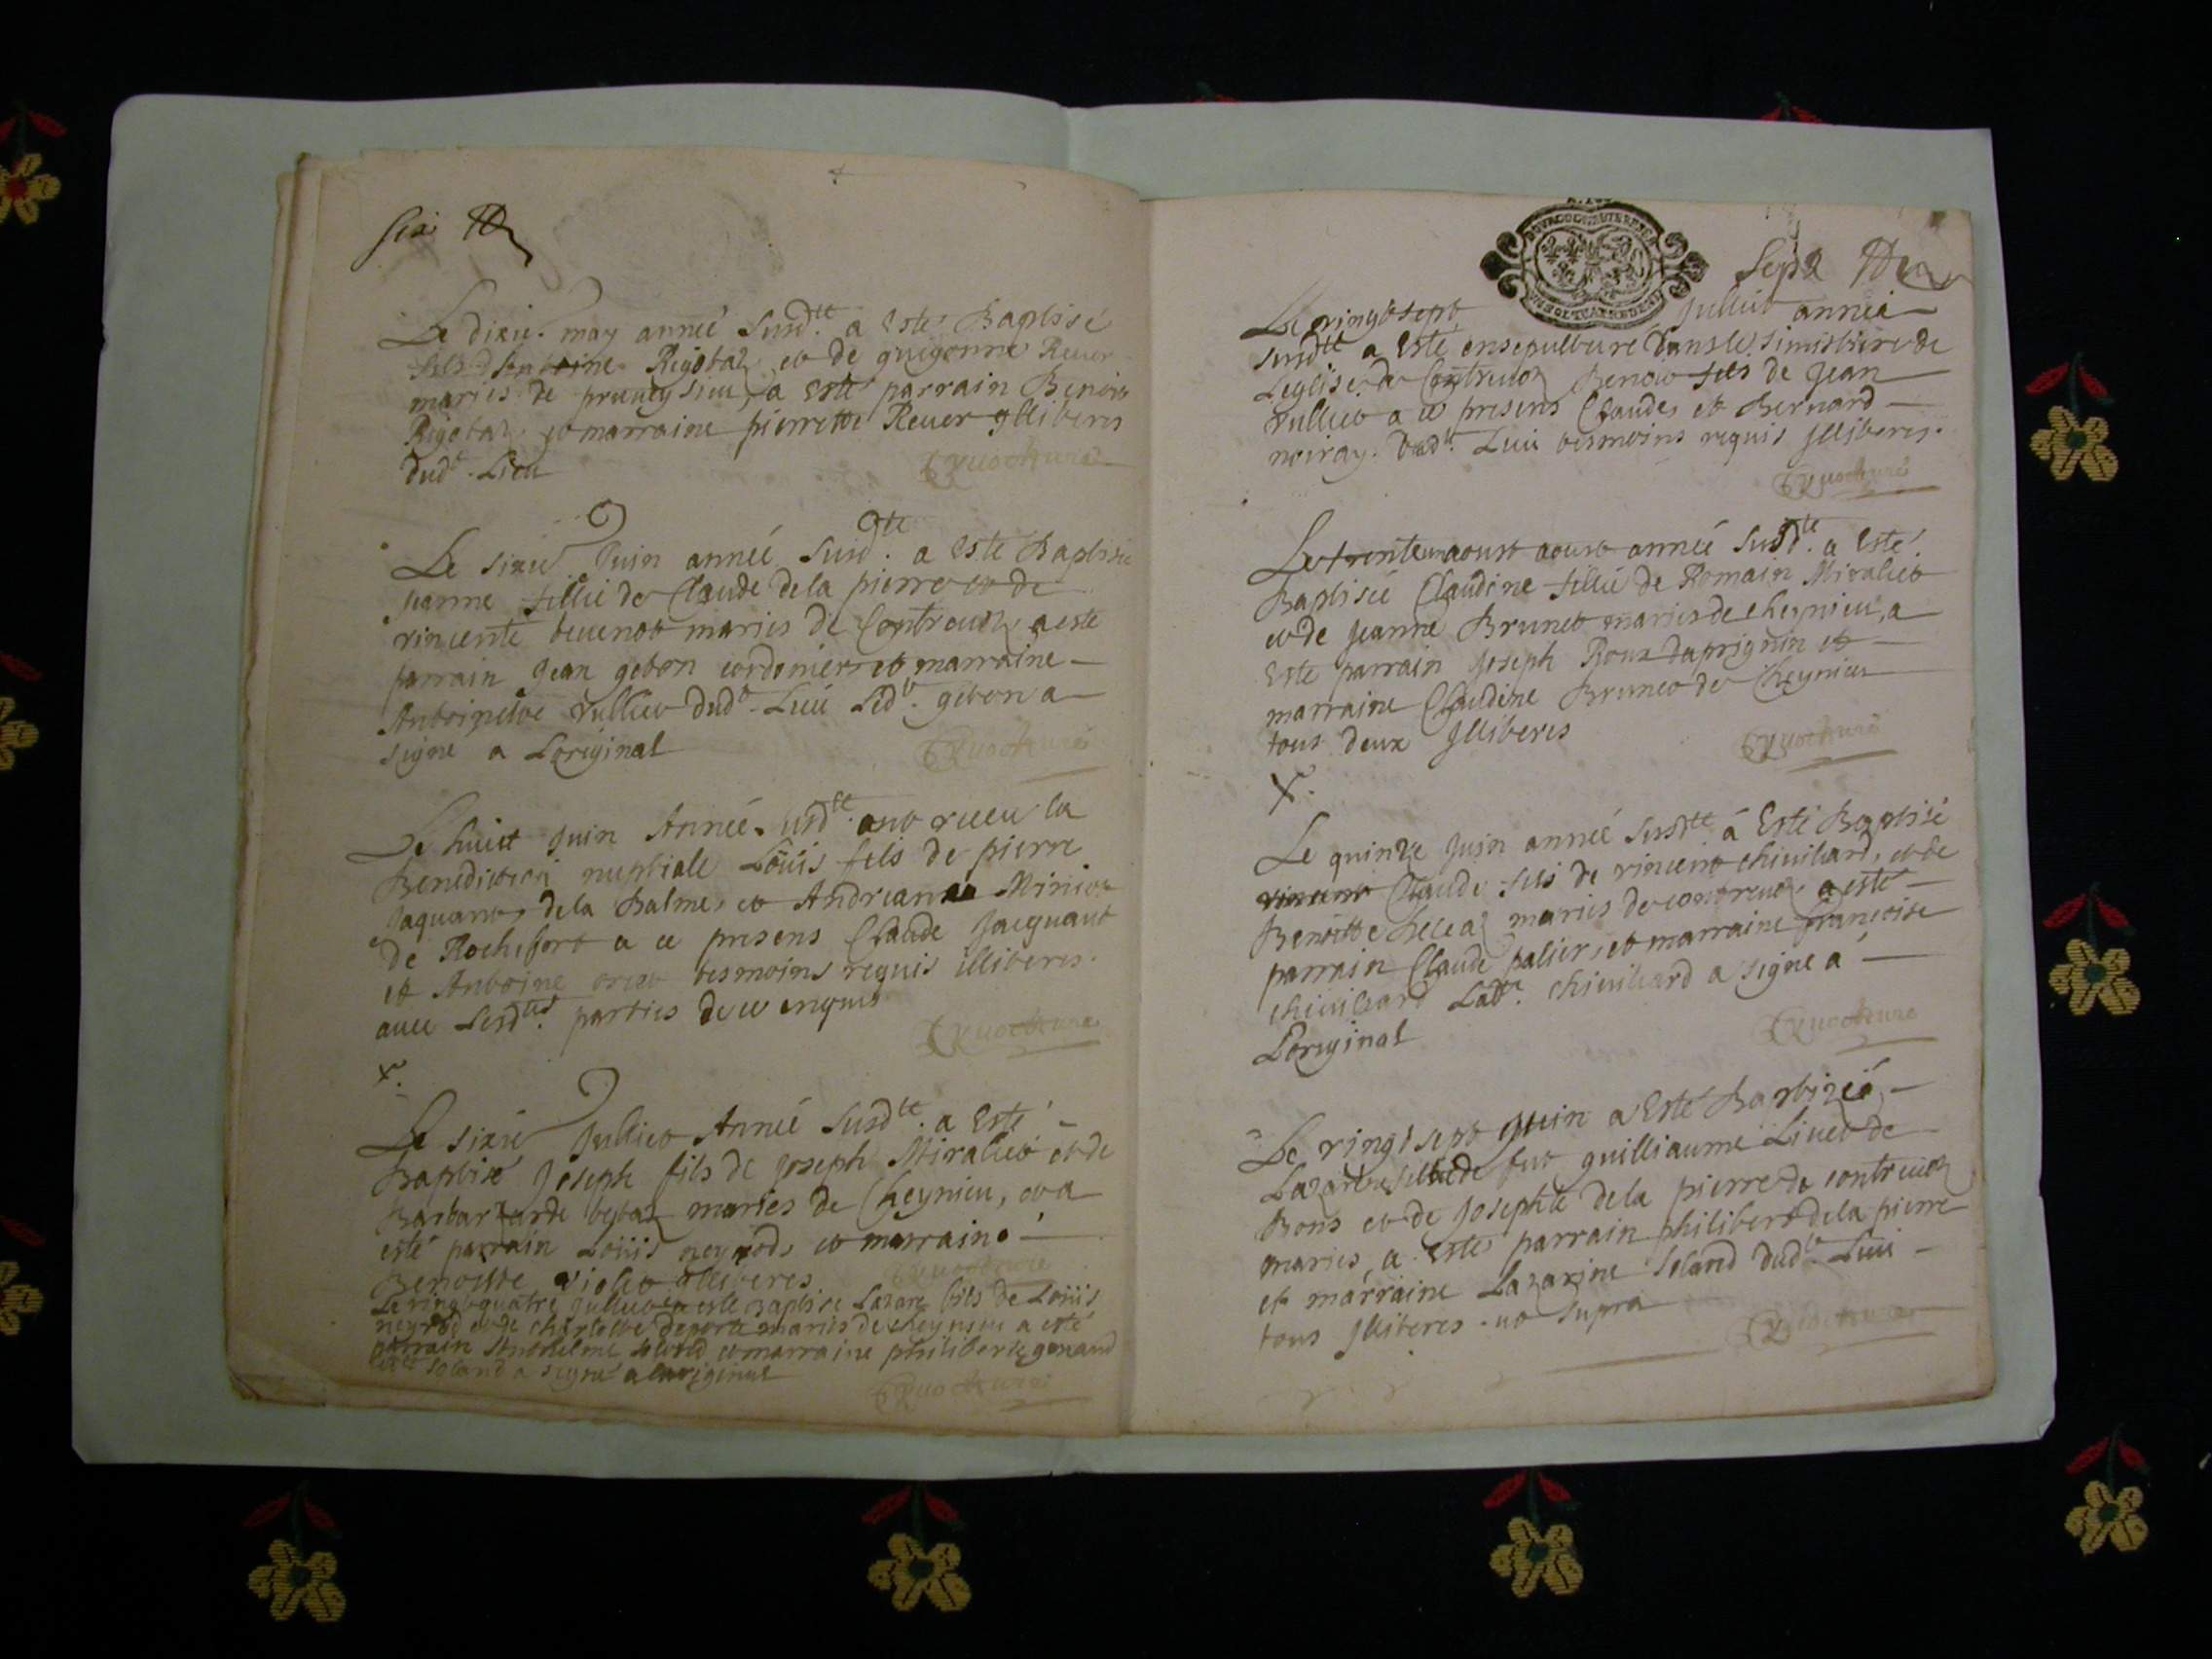 six
Le dixie. may anneé susd.te a esté Baptisé
fils d'Antoine Rigotaz et de guigonne Reuer
maries de pruneysieu, a esté parrain Benoit
Rigotaz et marraine pierrette Reuer Illiberes
dud.t Lieu
Le sixie Juin anneé susd.te a esté Baptisée
Jeanne fillie de Claude dela pierre et de
vincente teuenot maries de Contreuoz a esté
parrain Jean gobon cordonier et marraine
Antoinette vulliet dud.t Lieu Led.t gobon a
signé a Loriginal
Le huict Juin Anneé usd.te ont receu la
Benediction nuptiale Loüis fils de pierre
Jaquant dela Balme et Andreanne Miniot
de Rochefort a ce presens Claude Jacquant
et Antoine tesmoins requis illiberes.
auec Lesd.tes parties de ce enquis
x.
Le sixie Julliet Anneé susd.te a Esté
Baptisé Joseph fils de Joseph Miralliet et de
maries de Cheynieu, et a
esté parrain Loüis neyrods et marraine
Benoitte violet Illiberes
Le vingt quatre Julliet a esté Baptisé Lazare fils de Loüis
neyrod et de maries de cheynieu a esté
parrain Anthelme soland et marraine philiberte gonand
soland a signé a Loriginal
Sept
Le vingt sept Julliet anneé
susd.te a Esté ensepulturé Dans le simistiere de
Leglise de Contreuoz Benoit fils de Jean
vulliet a ce presens Claude et Bernard
noiray. dud.t Lieu tesmoins requis Illiberes.
Le trente un aoust aoust anneé susd.te a Esté
Baptiseé Claudine fillie de Romain Miralliet
et de Jeanne Brunet maries de cheynieu, a
Esté parrain Joseph Roux daprignin et
marraine Claudine Brunet de Cheynieu
tous deux Illiberes
x.
Le quinze Juin anneé susd.te á Esté Baptisé
vincent Claude fils de vincent chiuilliard, et de
Benoitte maries de contreuoz a esté
parrain Claude palier, et marraine francoise
chiuilliard Lad.te chiuilliard a signé a
Loriginal
Le vingt sept Juin a Esté Baptizeé
Lazarine fillie de fut guilliaume Liuet de
Bons et de Josephte dela pierre de contreuoz
maries, a Esté parrain philibert dela pierre
et marraine Lazarine soland dud.t Lieu
tous Illiberes ut supra